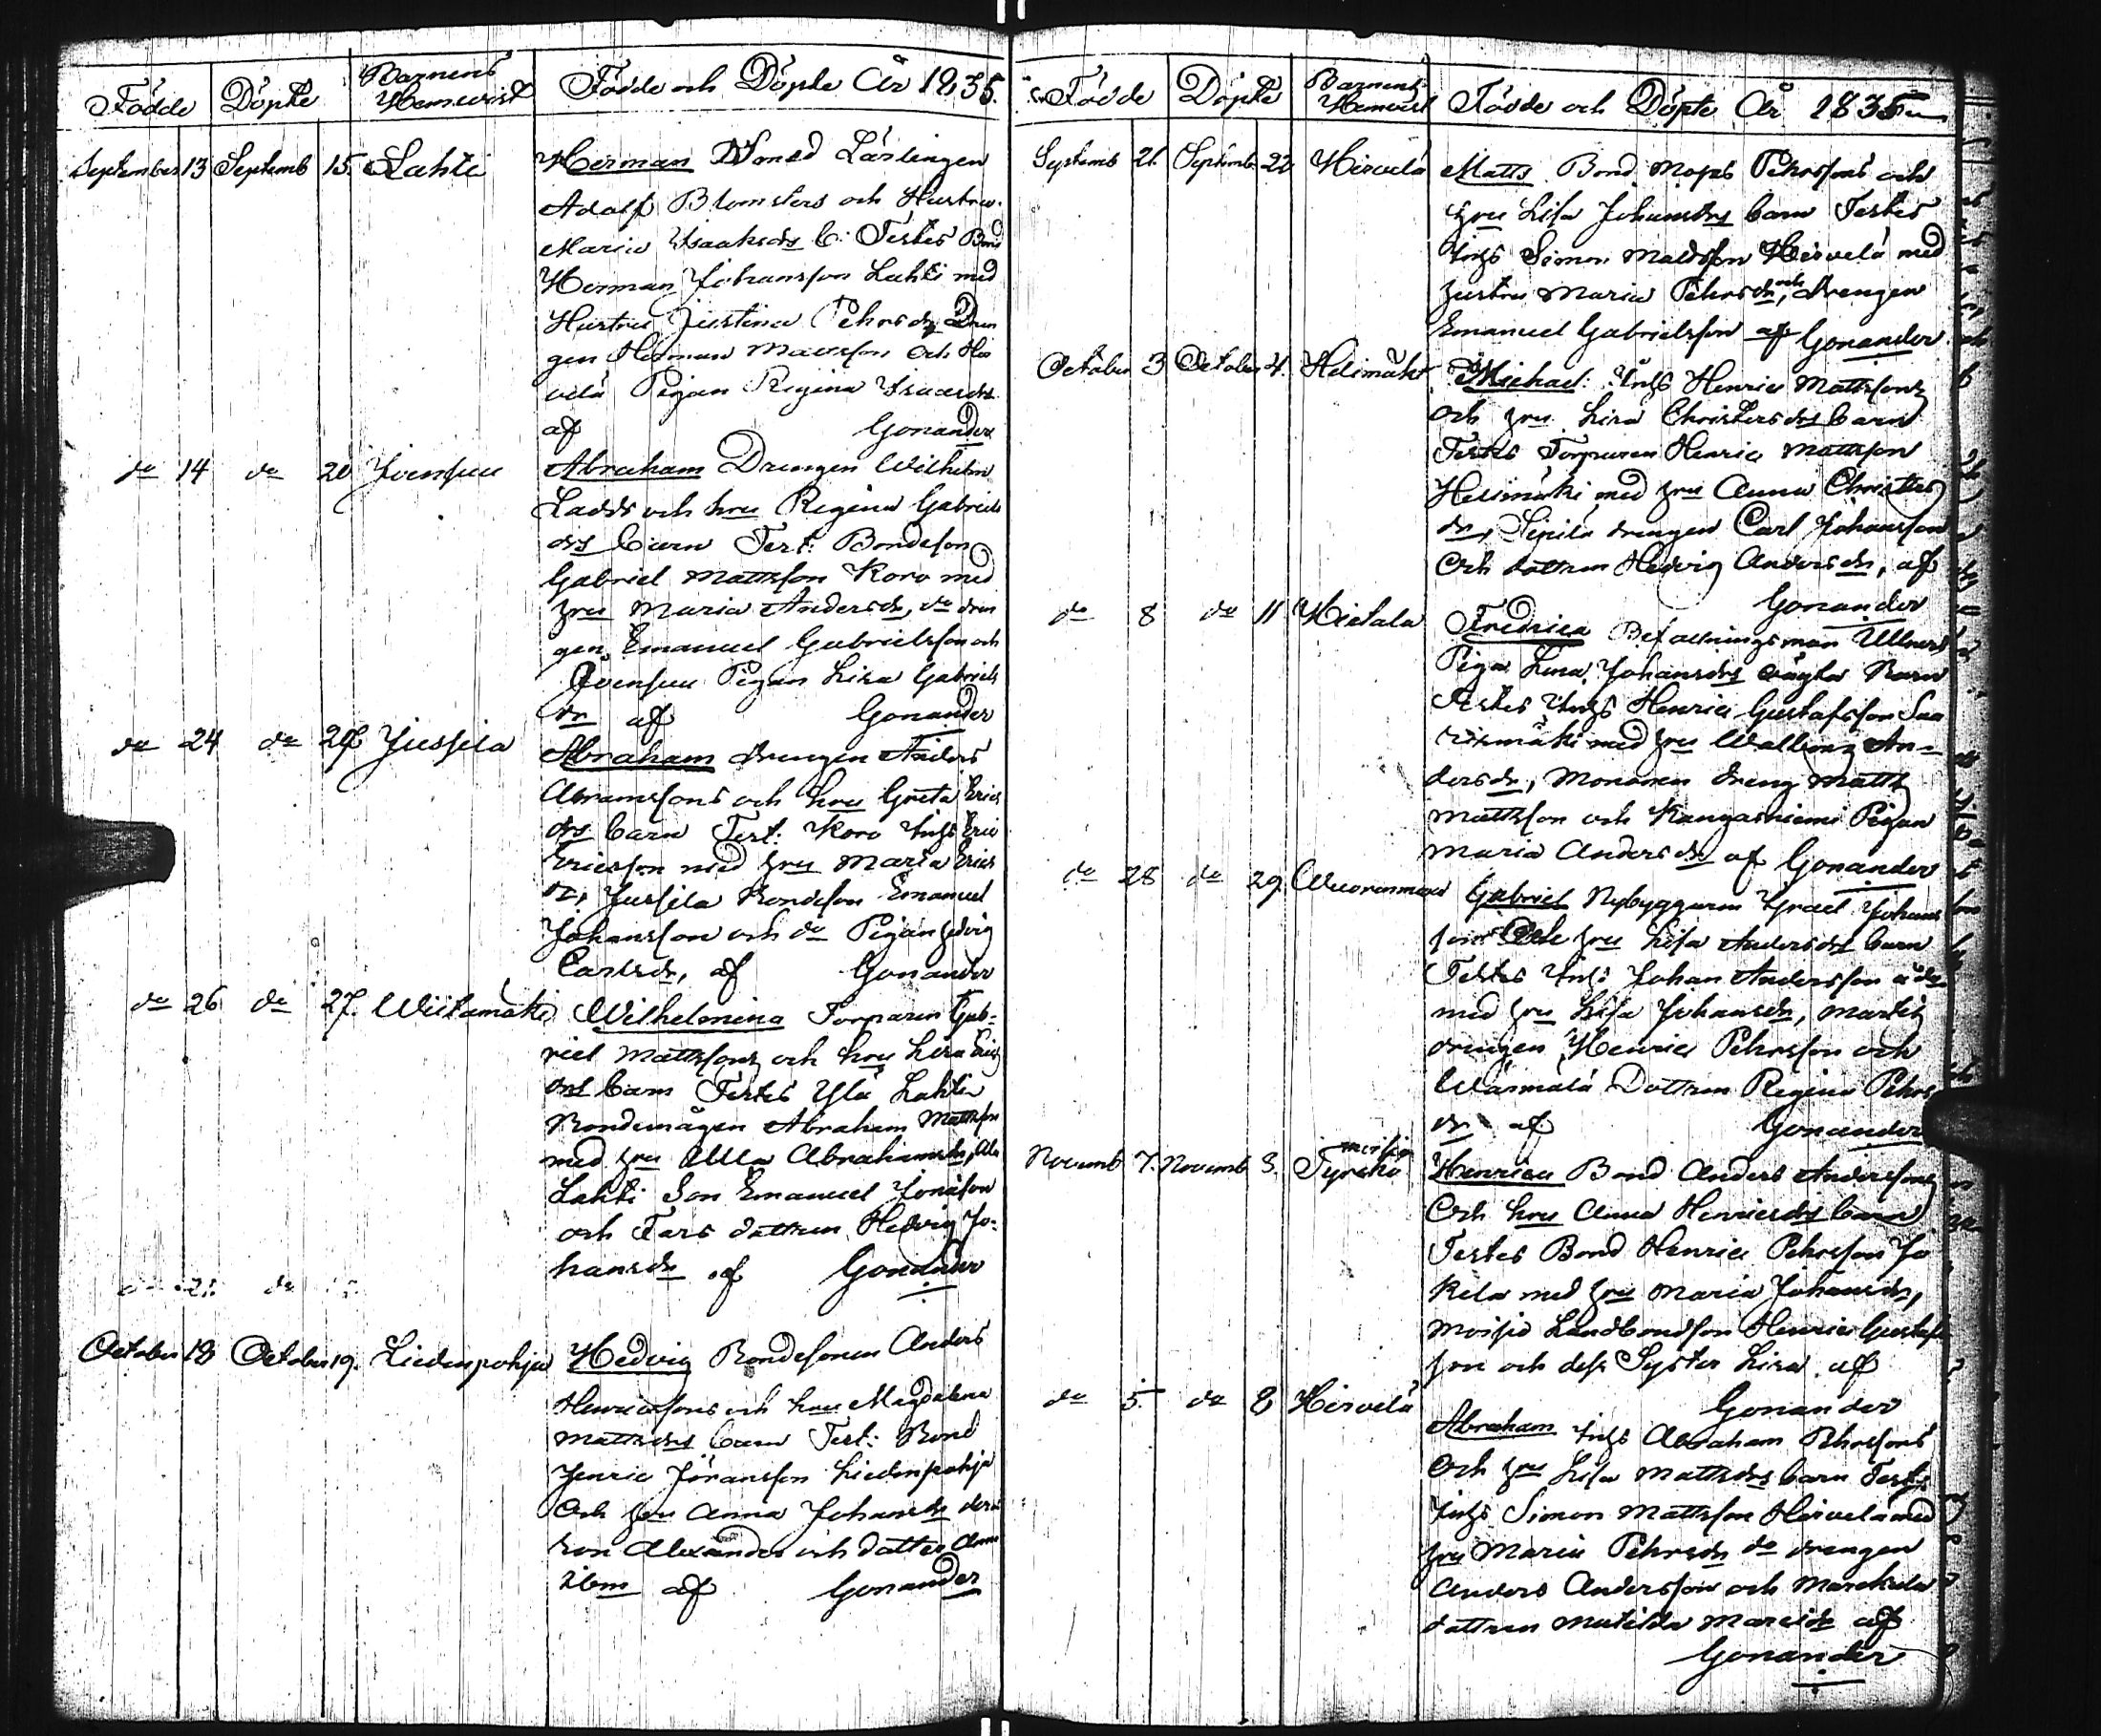 Födde Döpte Barnens Hemvist Födde och Döpte År 1835.
September 13 Septemb 15. Lahti Herman Lärlingen
Adolf Blomsters och Hustru
Maria Isaaksdrs b: Testes Bond
Herman Johansson Lahti med
Hustru Justina Pehrsdr Dren
gen Herman Mattsson och Hir
velä Pigan Regina Isaacsdr
af Gonander
do 14 do 20 Jvensuu Abraham Drengen Wilhelm
Ladds och hru Regina Gabriels
drs barn Test: Bondeson
Gabriel Mattsson Koro med
hru Maria Andersdr, do dren
gen Emanuel Gabrielsson och
Jvensuu Pigan Lisa Gabriels
dr af Gonander
do 24 do 27 Jussila Abraham drengen Anders
Abramssons och hru Greta Erics
drs barn Test: Koro Inhs Eric
Ericsson med hru Maria Erics
dr, Jussila Bondeson Emanuel
Johansson och do Pigan Hedvig
Carlsdr, af Gonander
do 26 do 27. Wiitamäki Wilhelmina Torparen Gab-
riel Mattssons och hru Lisa Erics
drs barn Testes Ylä Lahti
Bondemågen Abraham Mattsson
med hru Ulla Abrahamsdr, Ala
Lahti Son Emanuel Jonasson
och Fars dottren Hedvig Jo-
hansdr af Gonander
do do
October 18 October 19. Liedenpohja Hedvig Bondesonen Anders
Henricssons och hru Magdalena
Mattsdrs barn Test: Bond
Henric Göransson Liedenpohja
Och hru Anna Johansdr dera
son Alexander och dotter Anna
af Gonander
Födde Döpte Barnens Hemvist Födde och Döpte År 1835
Septemb 21. Septemb. 22 Hirvelä Matts Bond Moses Pehrssons och
hru Lisa Johansdrs barn Testes
Inhs Simon Mattsson Hirvelä med
hustru Maria Pehrsdr, och drengen
Emanuel Gabrielsson af Gonander
October 3 October 4. Helimäki Michael: Inhs Henric Mattssons
och hru Lisa Christersdrs barn
Testes Torparen Henric Mattsson
Helimäki med hru Anna Christers
dr, Sipilä drengen Carl Johansson
Och dottren Hedvig Andersdr, af
Gonander
do 8 do 11 Hietala Fredrica Befallningsman Ullners
Piga Lena Johansdrs oägta Barn
Testes Inhs Henric Gustafsson Saa
rixmäki med hru Walborg An-
dersdr, Mononen dreng Matts
Mattsson och Kangasniemi Pigan
Maria Andersdr af Gonander
do 28 do 29. Wuorenmaa Gabriel Nybyggaren Israel Johans
sons Och hru Lisa Andersdrs barn
Testes Inhs Johan Andersson a do
med hru Lisa Johansdr, Martis
drengen Henric Pehrsson och
Wärmälä Dottren Regina Pehrs
dr af Gonander
Novemb 7. Novemb 3. Moisio Tyrskö Henrica Bond Anders Anderssons
Och hru Anna Henricsdrs barn
Testes Bond Henric Pehrsson Jo
kela med hru Maria Johansdr,
Moisio Landbondson Henric Gustafs
son och dess Syster Lisa af
Gonander
do 5. do 8 Hirvelä Abraham Inhs Abraham Pehrssons
Och hru Lisa Mattsdrs barn Testes
Inhs Simon Mattsson Hirvelä med
hru Maria Pehrsdr do drengen
Anders Andersson och Marckula
dottren Matilda Marcidr af
Gonander